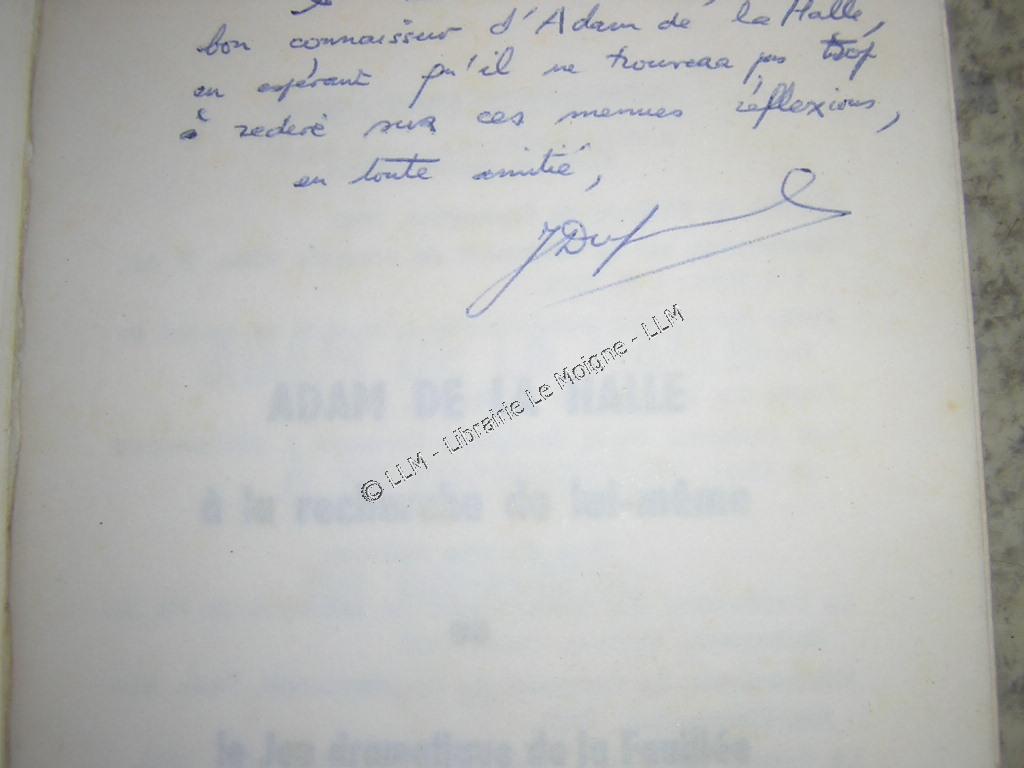 bon connaisseur d'Adam de la Halle,
en espérant qu'il ne trouvera pas trop
à redire sur ces menues réflexions,
en toute amitié,
JDuf
© LLM - Librairie Le Moigne - LLM
ADAM DE LA HALLE
à la recherche de lui-même
ou
le Jeu dramatique de la Feuillée